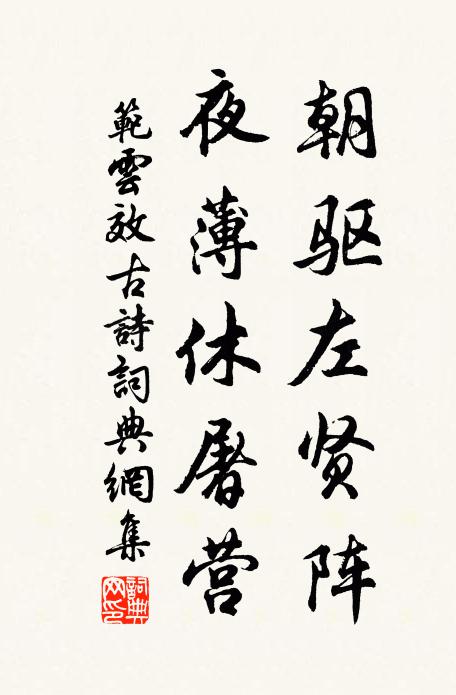 朝驱左贤阵
夜薄休屠营
範雲效古詩詞典網集
詞典網印